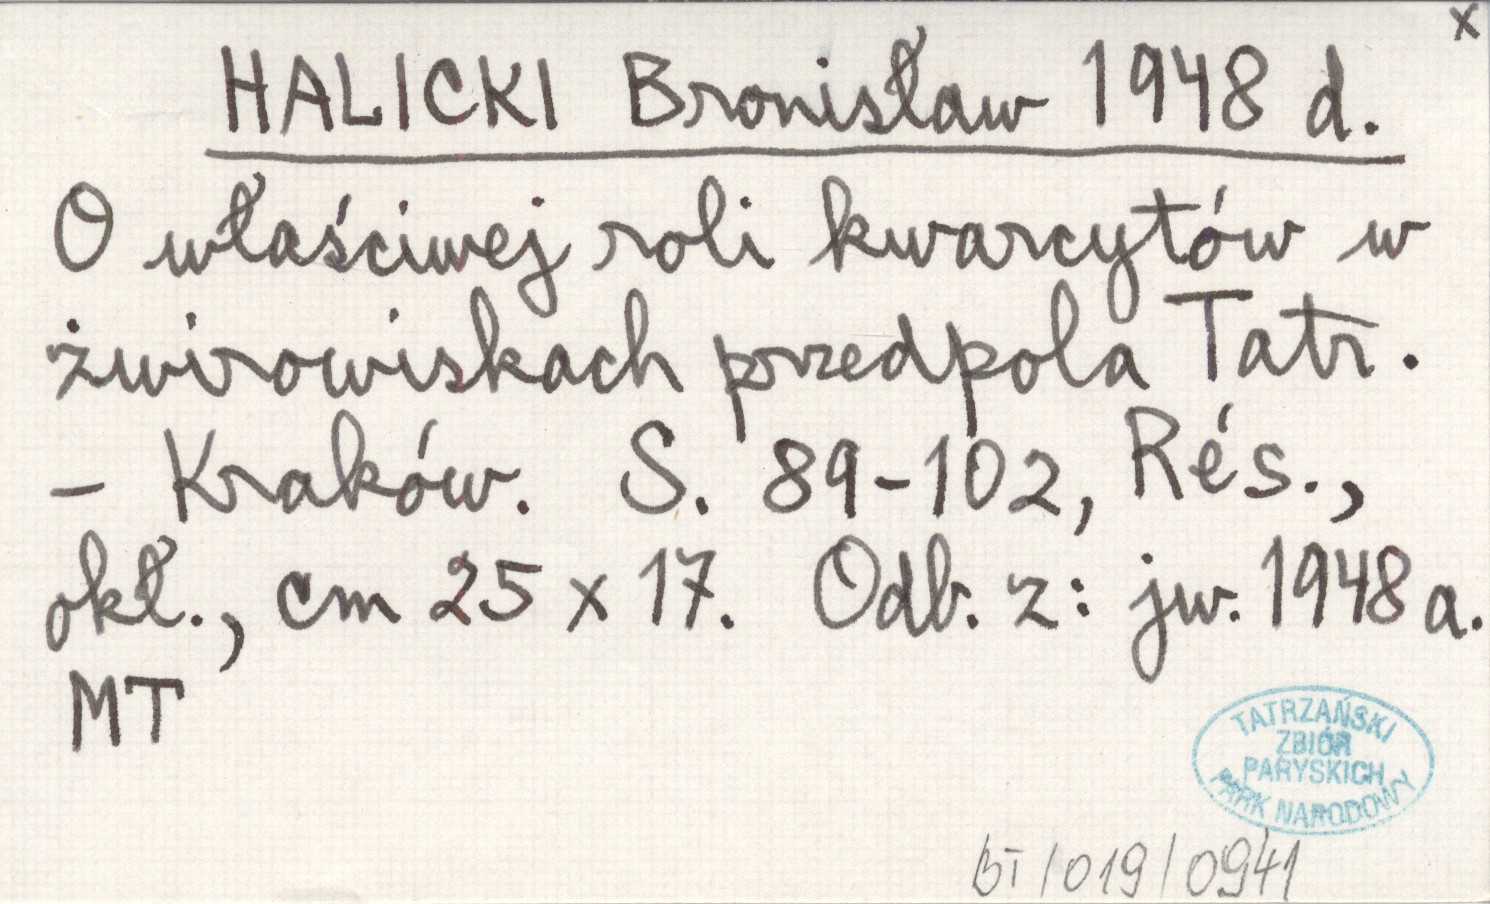 x
HALICKI Bronisław 1948 d.
O właściwej roli kwarcytów w
żwirowiskach przedpola Tatr.
- Kraków. S. 89-102, Rés.,
okł., cm 25 x 17. Odb. z: jw. 1948 a.
MT
TATRZAŃSKI
ZBIÓR
PARYSKICH
PARK NARODOWY
BT/019/0941